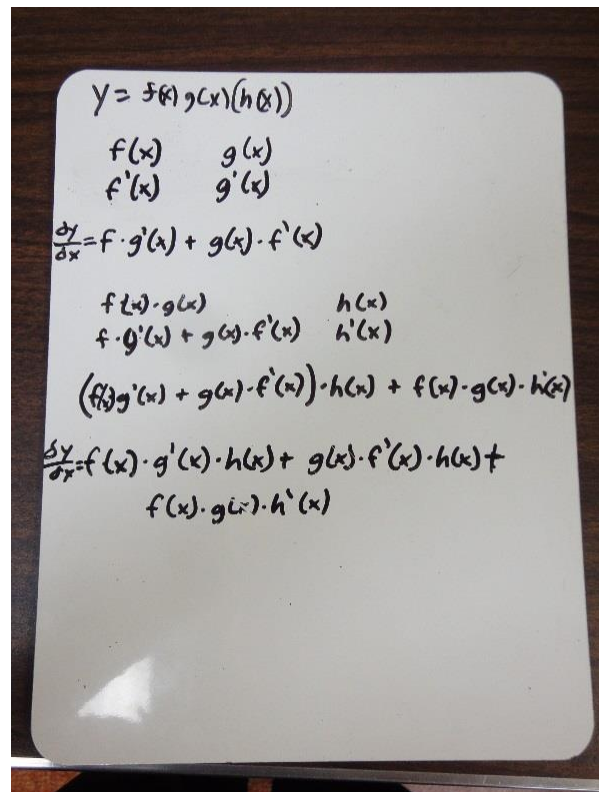 y = f(x) g(x)(h(x))
f(x) g(x)
f'(x) g'(x)
dy/dx = f · g'(x) + g(x) · f'(x)
f(x) · g(x) h(x)
f · g'(x) + g(x) · f'(x) h'(x)
(f(x)g'(x) + g(x) · f'(x)) · h(x) + f(x) · g(x) · h'(x)
dy/dx = f(x) · g'(x) · h(x) + g(x) · f'(x) · h(x) +
f(x) · g(x) · h'(x)